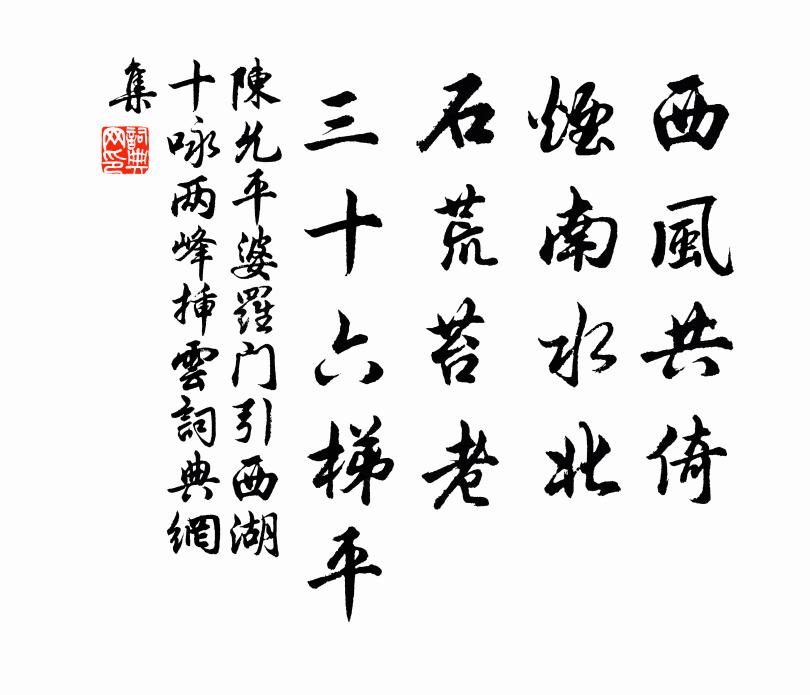 西風共倚
煙南水北
石荒苔老
三十六梯平
陳允平婆羅门引西湖
十咏两峰挿雲詞典網
集
詞典
网印